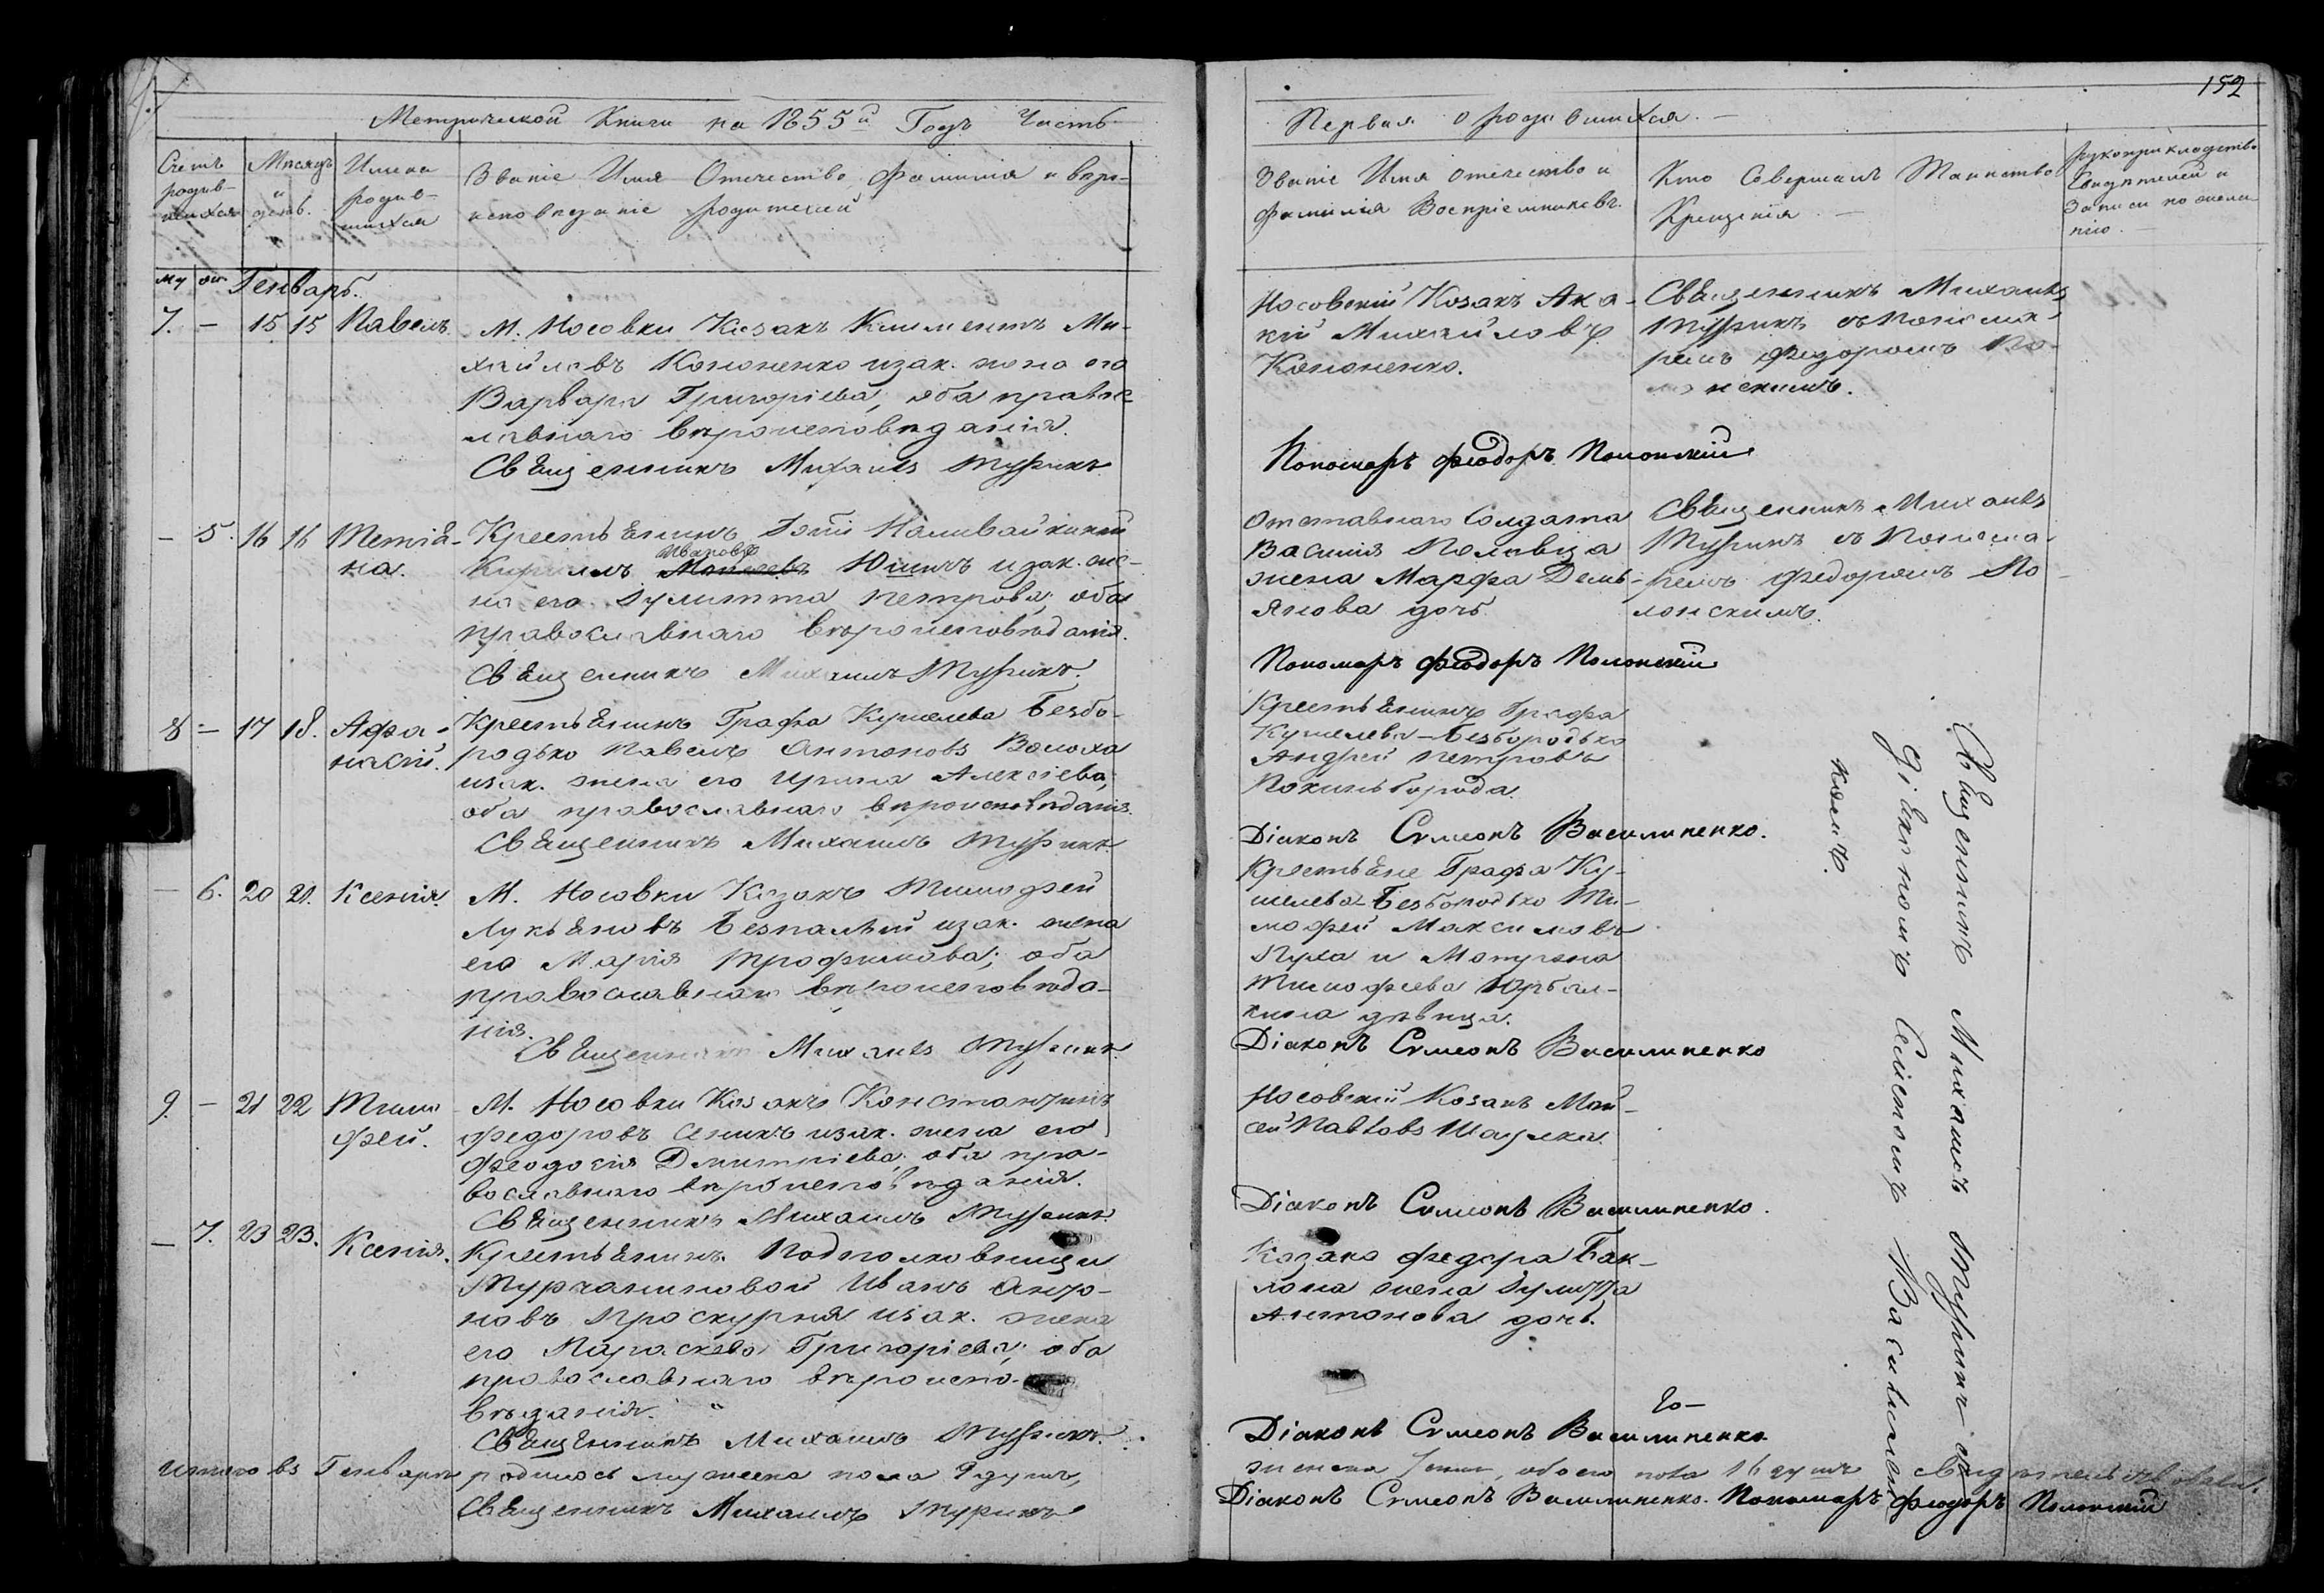 152
Метрической Книги на 1855й Годъ Часть
Первая о родившихся.
Счетъ родив-шихся
Мѣсяцъ и день.
Имена родив-шихся
Званіе Имя Отечество, Фамилія и вѣро-
исповѣданіе родителей
Званіе Имя Отечество и
фамилія Воспріемниковъ.
Кто Совершалъ Таинство
Крещенія
рукоприкладство
Свидѣтелей и
Записи по жела-
нію.
му же Генварь.
7. – 15 15 Павелъ.
М. Носовки Козакъ Климентъ Ми-
хайловъ Кононенко изак. жена его
Варвара Григоріева, оба правос-
лавнаго вѣроисповѣданія.
Священникъ Михаилъ Турикъ
Носовскій Козакъ Ака-
кій Михайловъ
Кононенко.
Священникъ Михаилъ
Турикъ съ Понома-
ремъ Федоромъ По-
лонскимъ.
Пономарь Феодоръ Полонскій
– 5. 16 16 Татіа-
на.
Крестьянинъ Наливайкиной
Кириллъ Ивановъ Юшинъ изак. же-
на его Гулитта Петрова; оба
православнаго вѣроисповѣданія.
Священникъ Михаилъ Турикъ.
Отставнаго Солдата
Василія
жена Марфа Демь-
янова дочь
Священникъ Михаилъ
Турикъ съ Понома-
ремъ Федоромъ По-
лонскимъ.
Пономарь Феодоръ Полонскій
8 – 17 18. Афа-
насій.
Крестьянинъ Графа Кушелева Безбо-
родько Павелъ Антоновъ Волоха
изак. жена его Ирина Алексіева;
оба православнаго вѣроисповѣданія.
Священникъ Михаилъ Турикъ
Крестьянинъ Графа
Кушелева-Безбородько
Андрей Петровъ
Покиньборода.
Діаконъ Симеонъ Василиненко.
– 6. 20 21. Ксенія.
М. Носовки Козакъ Тимофей
Лукьяновъ Безпалый изак. жена
его Марія Трофимова; оба
православнаго вѣроисповѣда-
нія.
Священникъ Михаилъ Турикъ
Крестьяне Графа Ку-
шелева-Безбородько Ти-
мофей Максимовъ
Пуха и Мотрона
Тимофеева
дѣвица.
Діаконъ Симеонъ Василиненко
9. – 21 22 Тимо
фей.
М. Носовки Козакъ Константинъ
Федоровъ Сеникъ изак. жена его
Феодосія Дмитріева; оба пра-
вославнаго вѣроисповѣданія.
Священникъ Михаилъ Турикъ
Носовскій Козакъ Мои-
сей Павловъ
Діаконъ Симеонъ Василиненко.
– 7. 23 23. Ксенія.
Крестьянинъ Подполковницы
Турчаниновой Иванъ
Проскурня изак. жена
его Параскева Григоріева; оба
православнаго вѣроиспо-
вѣданія.
Священникъ Михаилъ Турикъ.
Козака Федора Бак-
лона жена Гулитта
Антонова дочь.
Діаконъ Симеонъ Василиненко
Священникъ Михаилъ Турикъ съ
Діякономъ Симеономъ Василинен-
комъ.
Итого въ Генварѣ родилось мужеска пола 9 душъ,
женска 7, обоего пола 16 душъ
Священникъ Михаилъ Турикъ
Діаконъ Симеонъ Василиненко. Пономарь Феодоръ Полонскій